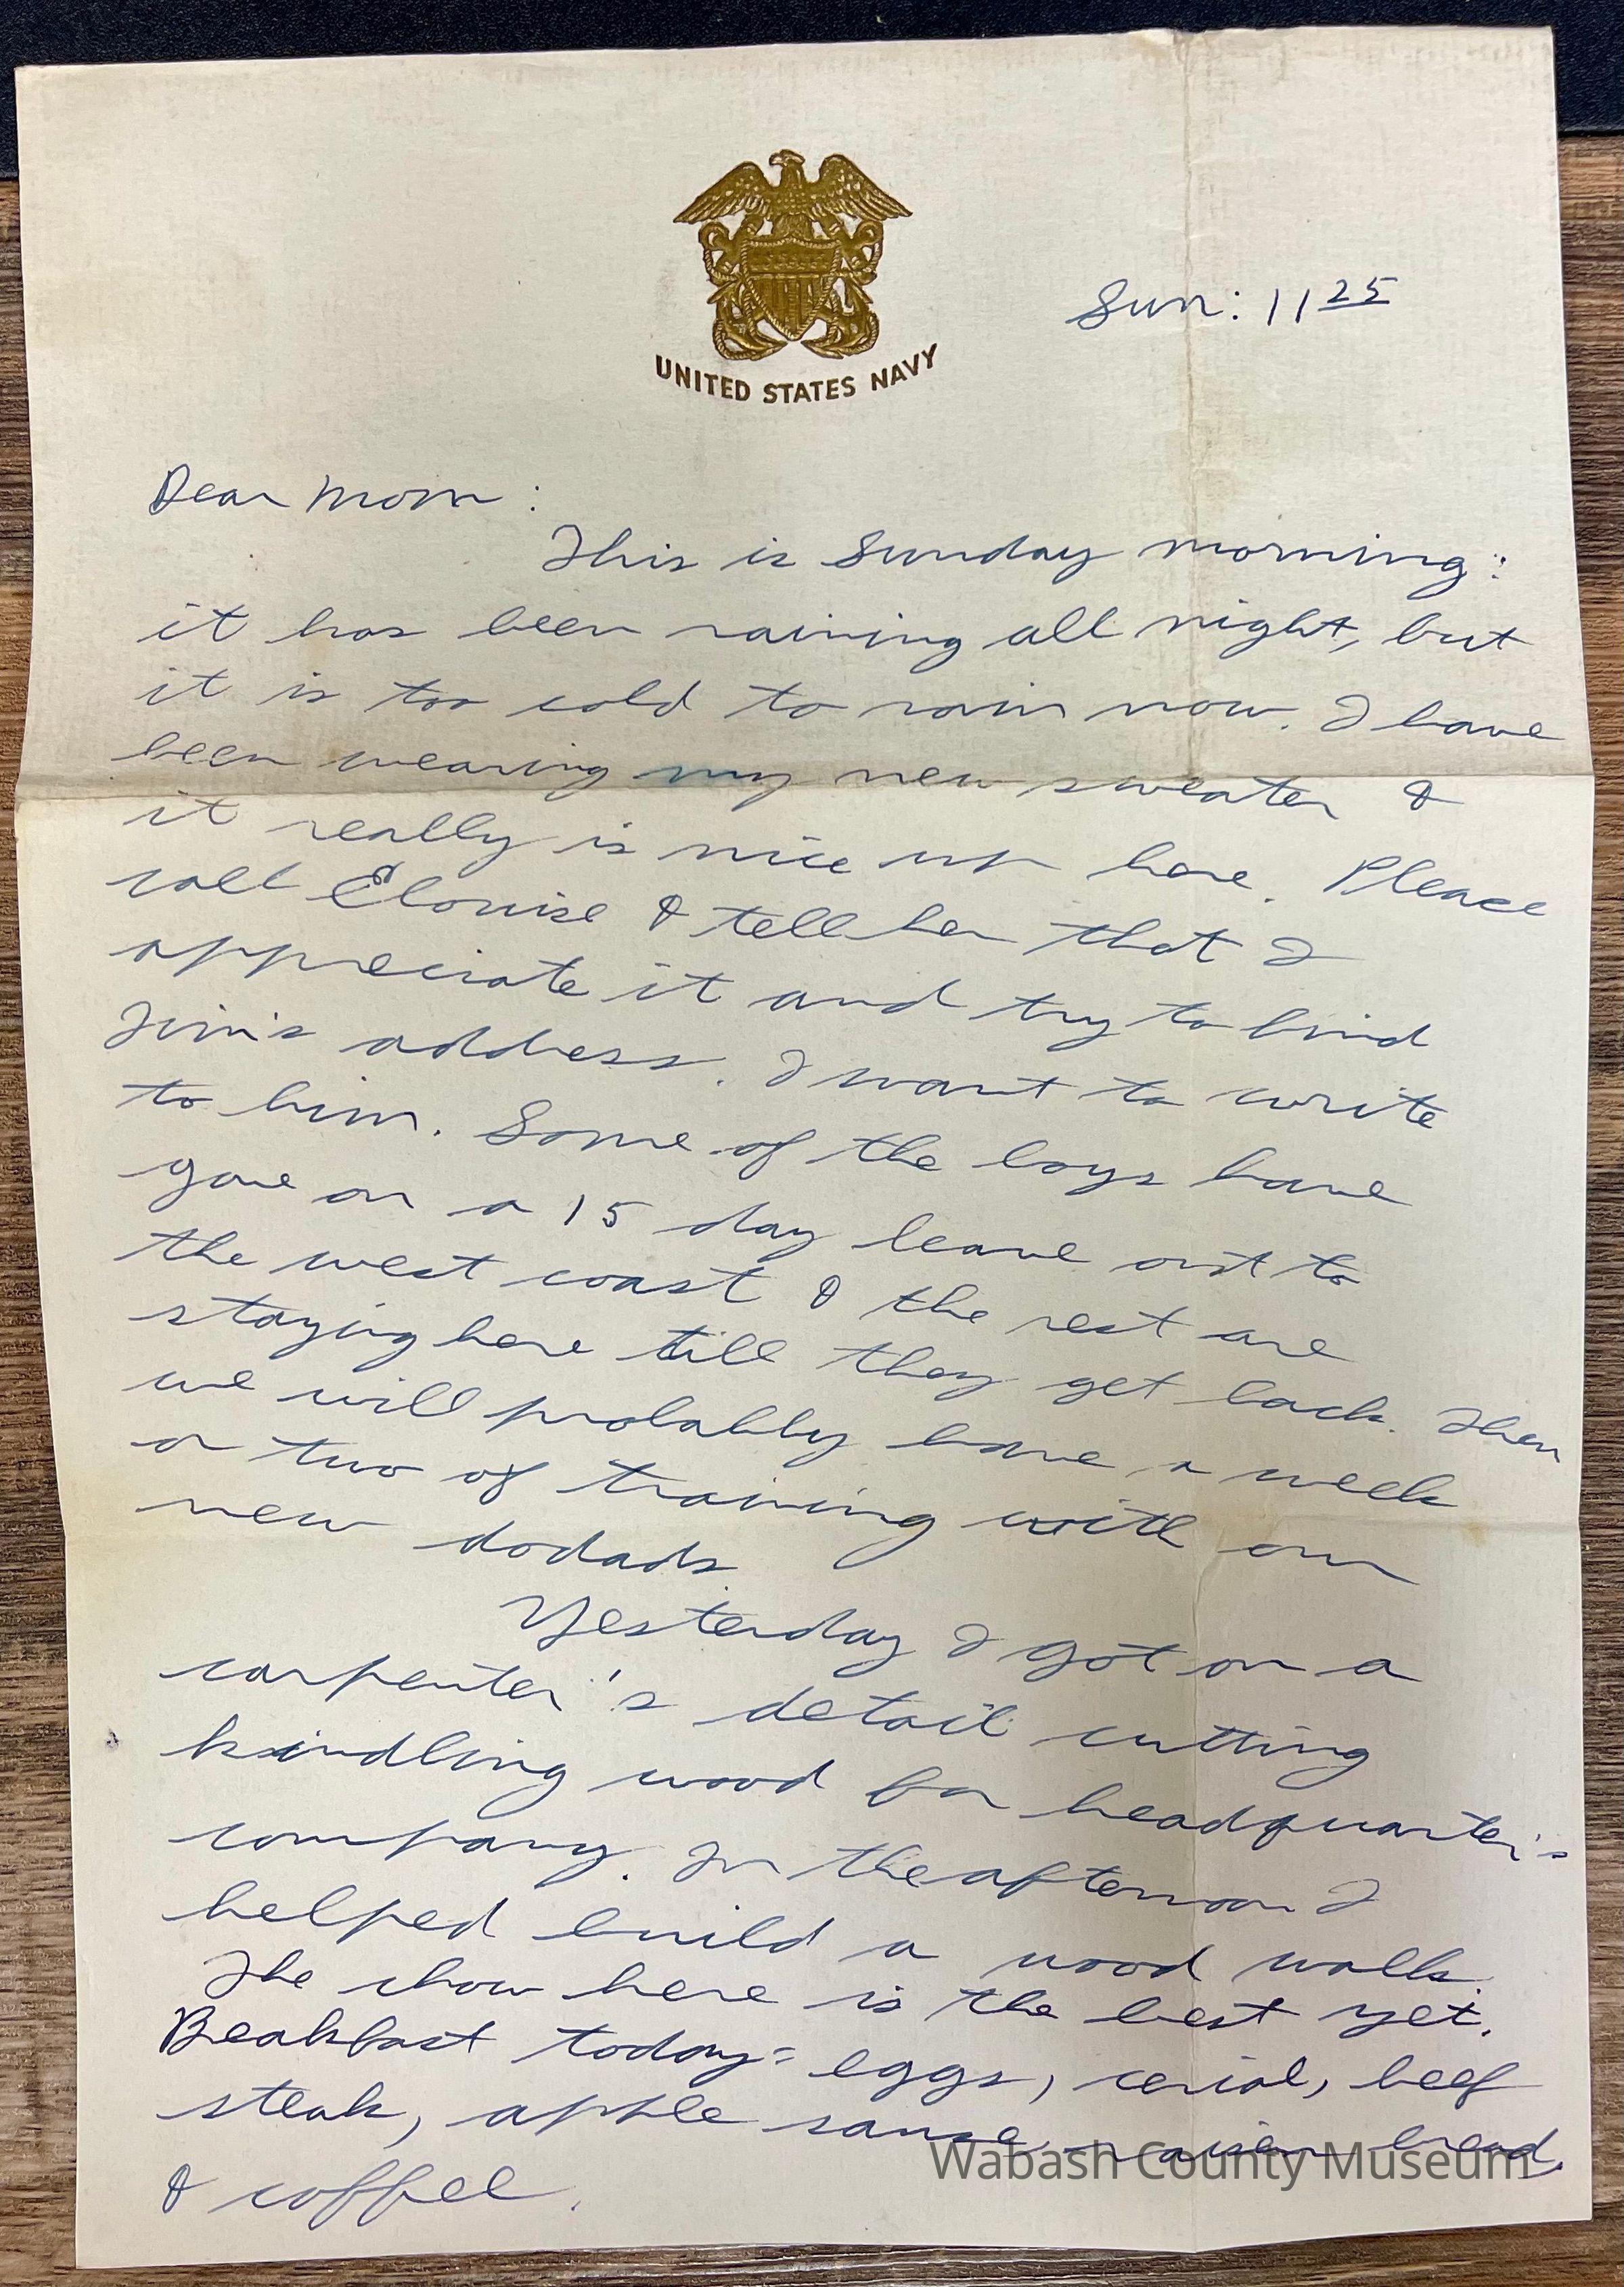 UNITED STATES NAVY
Sun: 11 25
Dear Mom:
This is Sunday morning:
it has been raining all night, but
it is too cold to rain now. I have
been wearing my new sweater &
it really is nice up here. Please
call Elouise & tell her that I
appreciate it and try to find
Jim's address. I want to write
to him. Some of the boys have
gone on a 15 day leave out to
the west coast & the rest are
staying here till they get back. Then
we will probably have a week
or two of training with our
new dodads.
Yesterday I got on a
carpenter's detail cutting
kindling wood for headquarter's
company. In the afternoon I
helped build a wood walk.
The chow here is the best yet.
Beakfast today = eggs, cerial, beef
steak, apple sauce, raisin bread,
& coffee.
Wabash County Museum